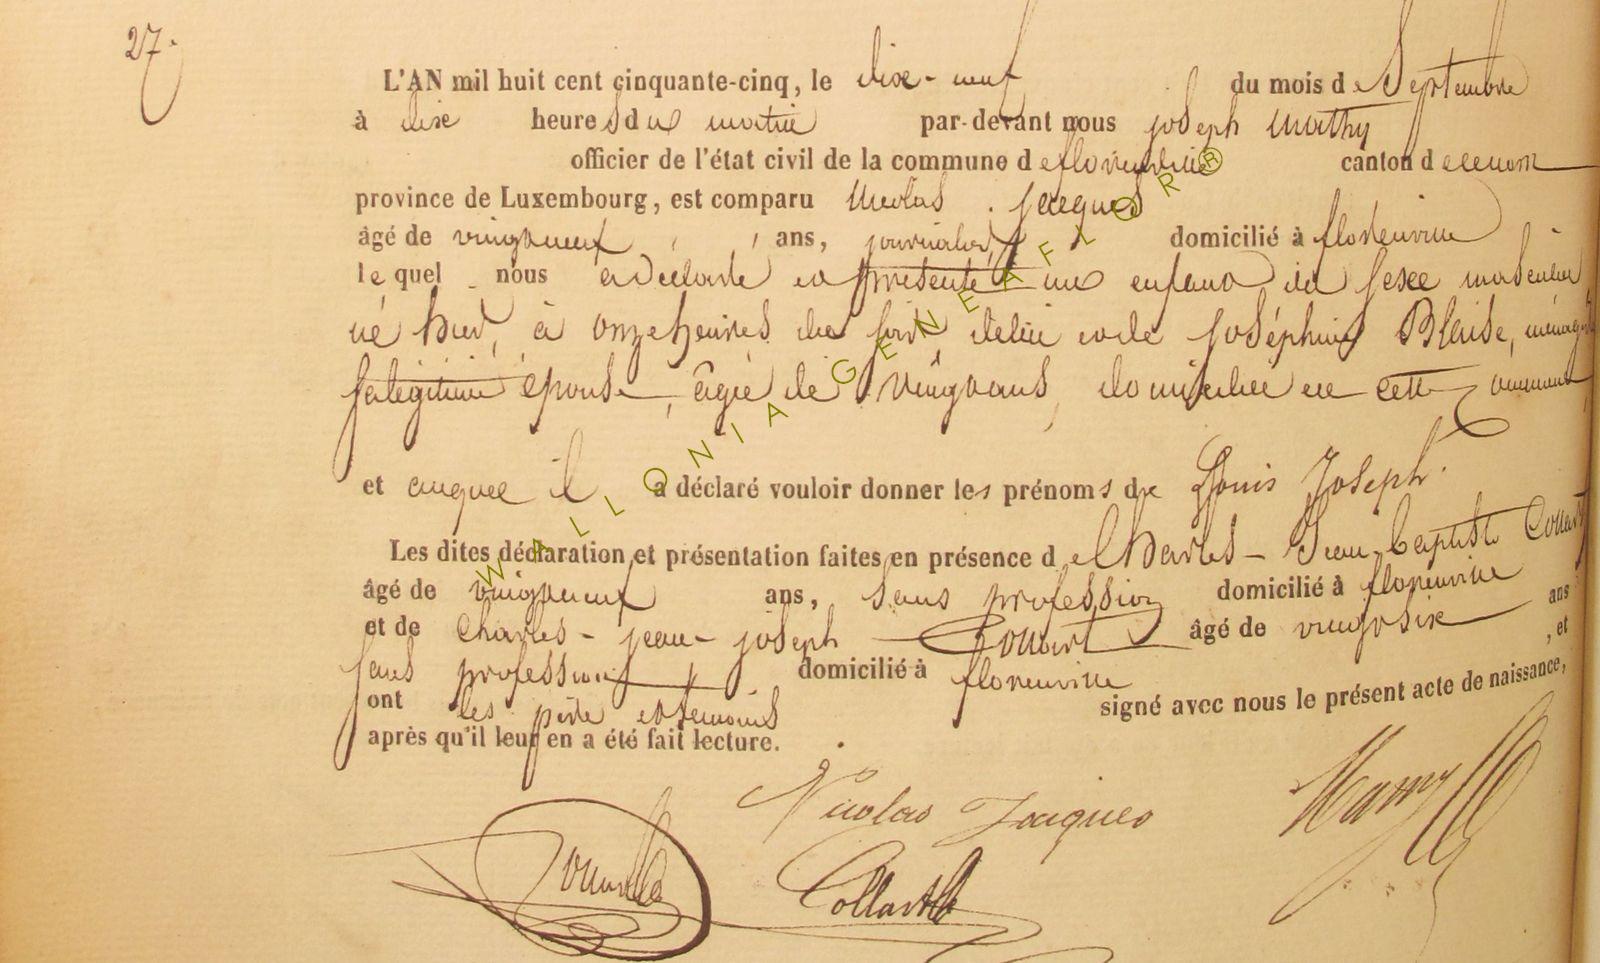 27.
L'AN mil huit cent cinquante-cinq, le dix-neuf du mois de Septembre
à dix heures du matin par-devant nous joseph Mathy
officier de l'état civil de la commune de florenville canton d
province de Luxembourg, est comparu Nicolas Jacques
âgé de vingtneuf ans, journalier, domicilié à florenville
lequel nous a déclaré et présenté un enfant du sexe masculin
né hier, à onze heures du soir de lui et de joséphine Blaise, ménagère
sa légitime épouse, âgée de vingt ans, domiciliée en cette commune,
et auquel il a déclaré vouloir donner les prénoms de Louis Joseph.
Les dites déclaration et présentation faites en présence de Charles-Jean-baptiste Collart
âgé de vingtneuf ans, sans profession domicilié à florenville
et de Charles-jean-joseph âgé de vingtsix ans
sans profession domicilié à florenville, et
ont les père et témoins signé avec nous le présent acte de naissance,
après qu'il leur en a été fait lecture.
Nicolas Jacques
Collart
WALLONIA GENEAFLOR®